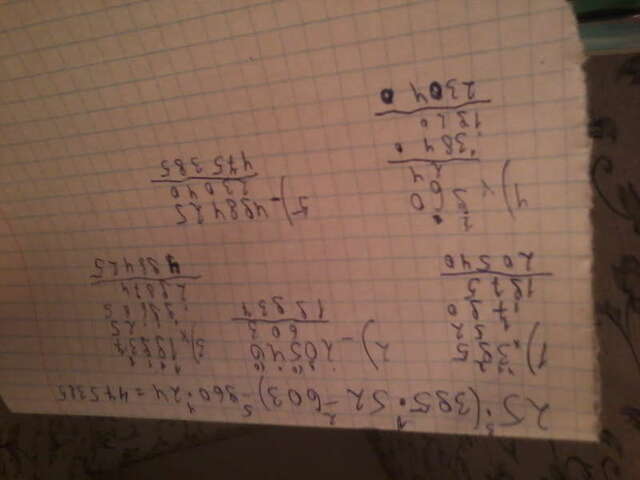 25·(395·52-603)-960·24=475385
1) 395
52
790
1975
20540
2) - 20540
603
19937
3) × 19937
25
99685
39874
498425
4) × 960
24
3840
1920
23040
5) - 498425
23040
475385